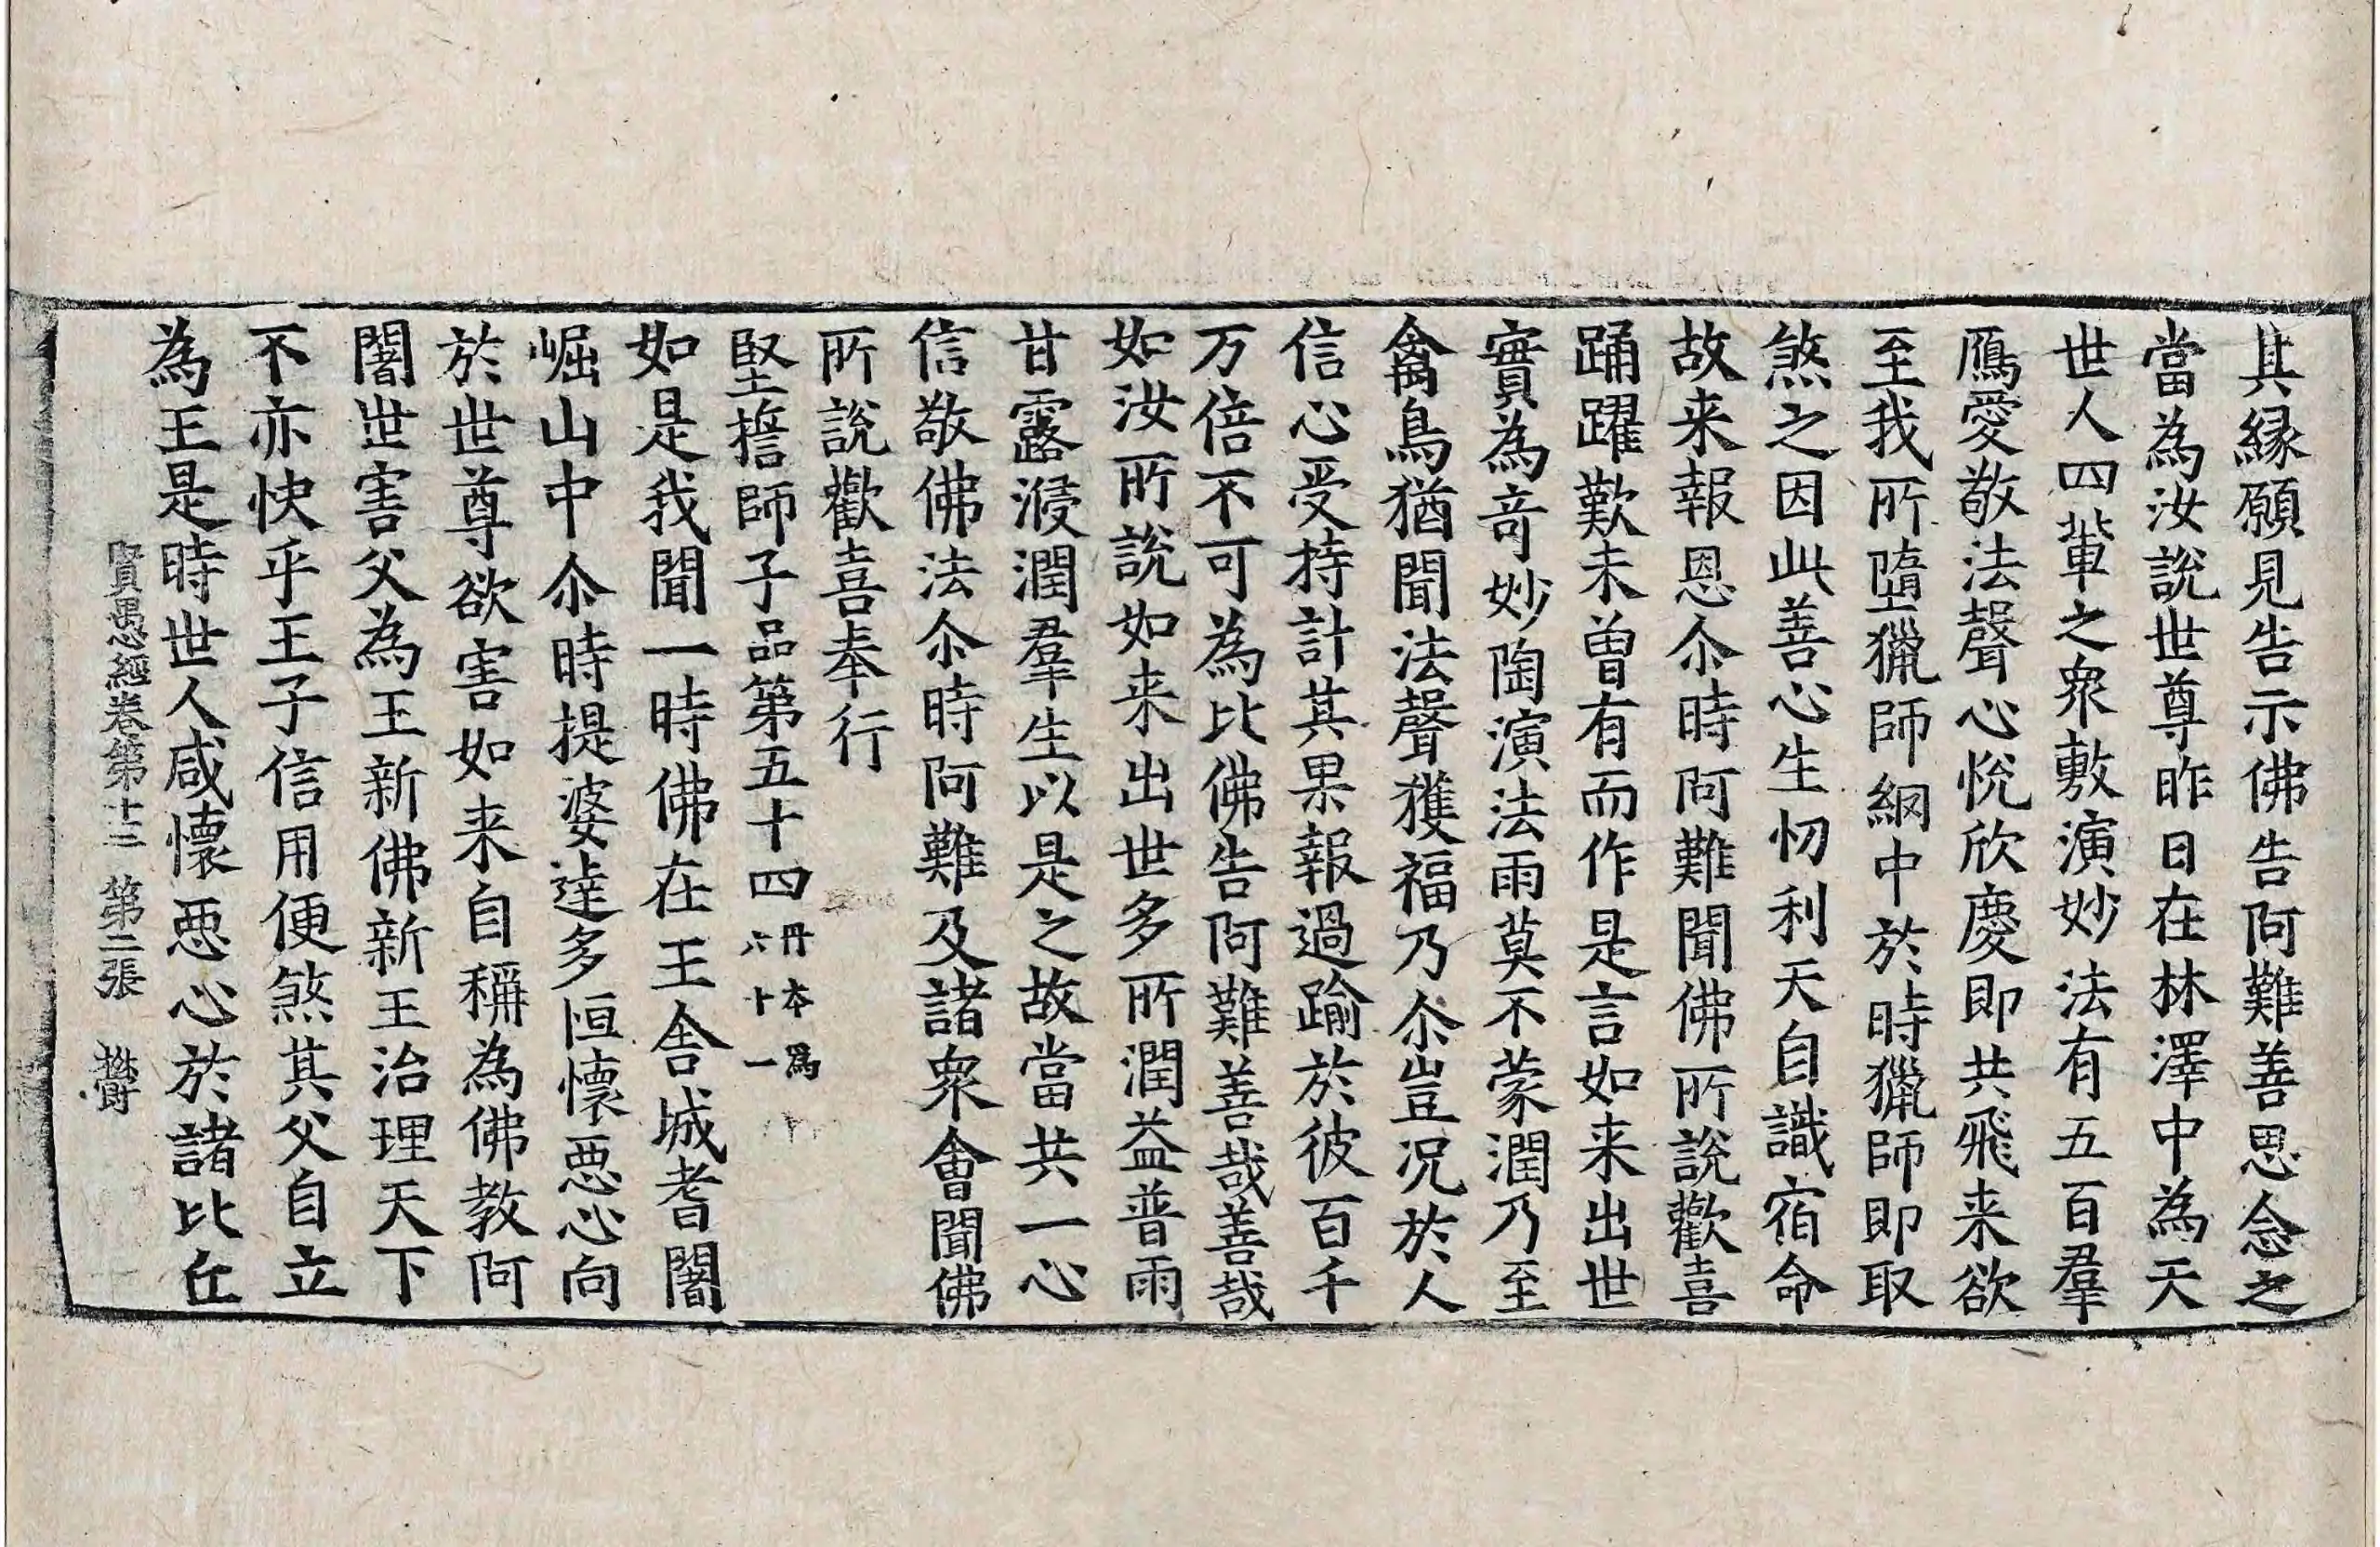 其縁願見告示佛告阿難善思念之
當為汝說世尊昨日在林澤中為天
世人四輩之衆敷演妙法有五百羣
鴈愛敬法聲心悅欣慶即共飛来欲
至我所墮獵師網中於時獵師即取
煞之因此善心生忉利天自識宿命
故来報恩尒時阿難聞佛所說歡喜
踊躍歎未曾有而作是言如来出世
實為奇妙陶演法雨莫不蒙潤乃至
禽鳥猶聞法聲獲福乃尒豈况於人
信心受持計其果報過踰於彼百千
万倍不可為比佛告阿難善哉善哉
如汝所說如来出世多所潤益普雨
甘露浸潤羣生以是之故當共一心
信敬佛法尒時阿難及諸衆會聞佛
所說歡喜奉行
堅誓師子品第五十四丹本爲六十一
如是我聞一時佛在王舍城耆闍
崛山中尒時提婆達多恒懷惡心向
於世尊欲害如来自稱為佛教阿
闍世害父為王新佛新王治理天下
不亦快乎王子信用便煞其父自立
為王是時世人咸懷惡心於諸比丘
賢愚經卷第十三 第二張 欝